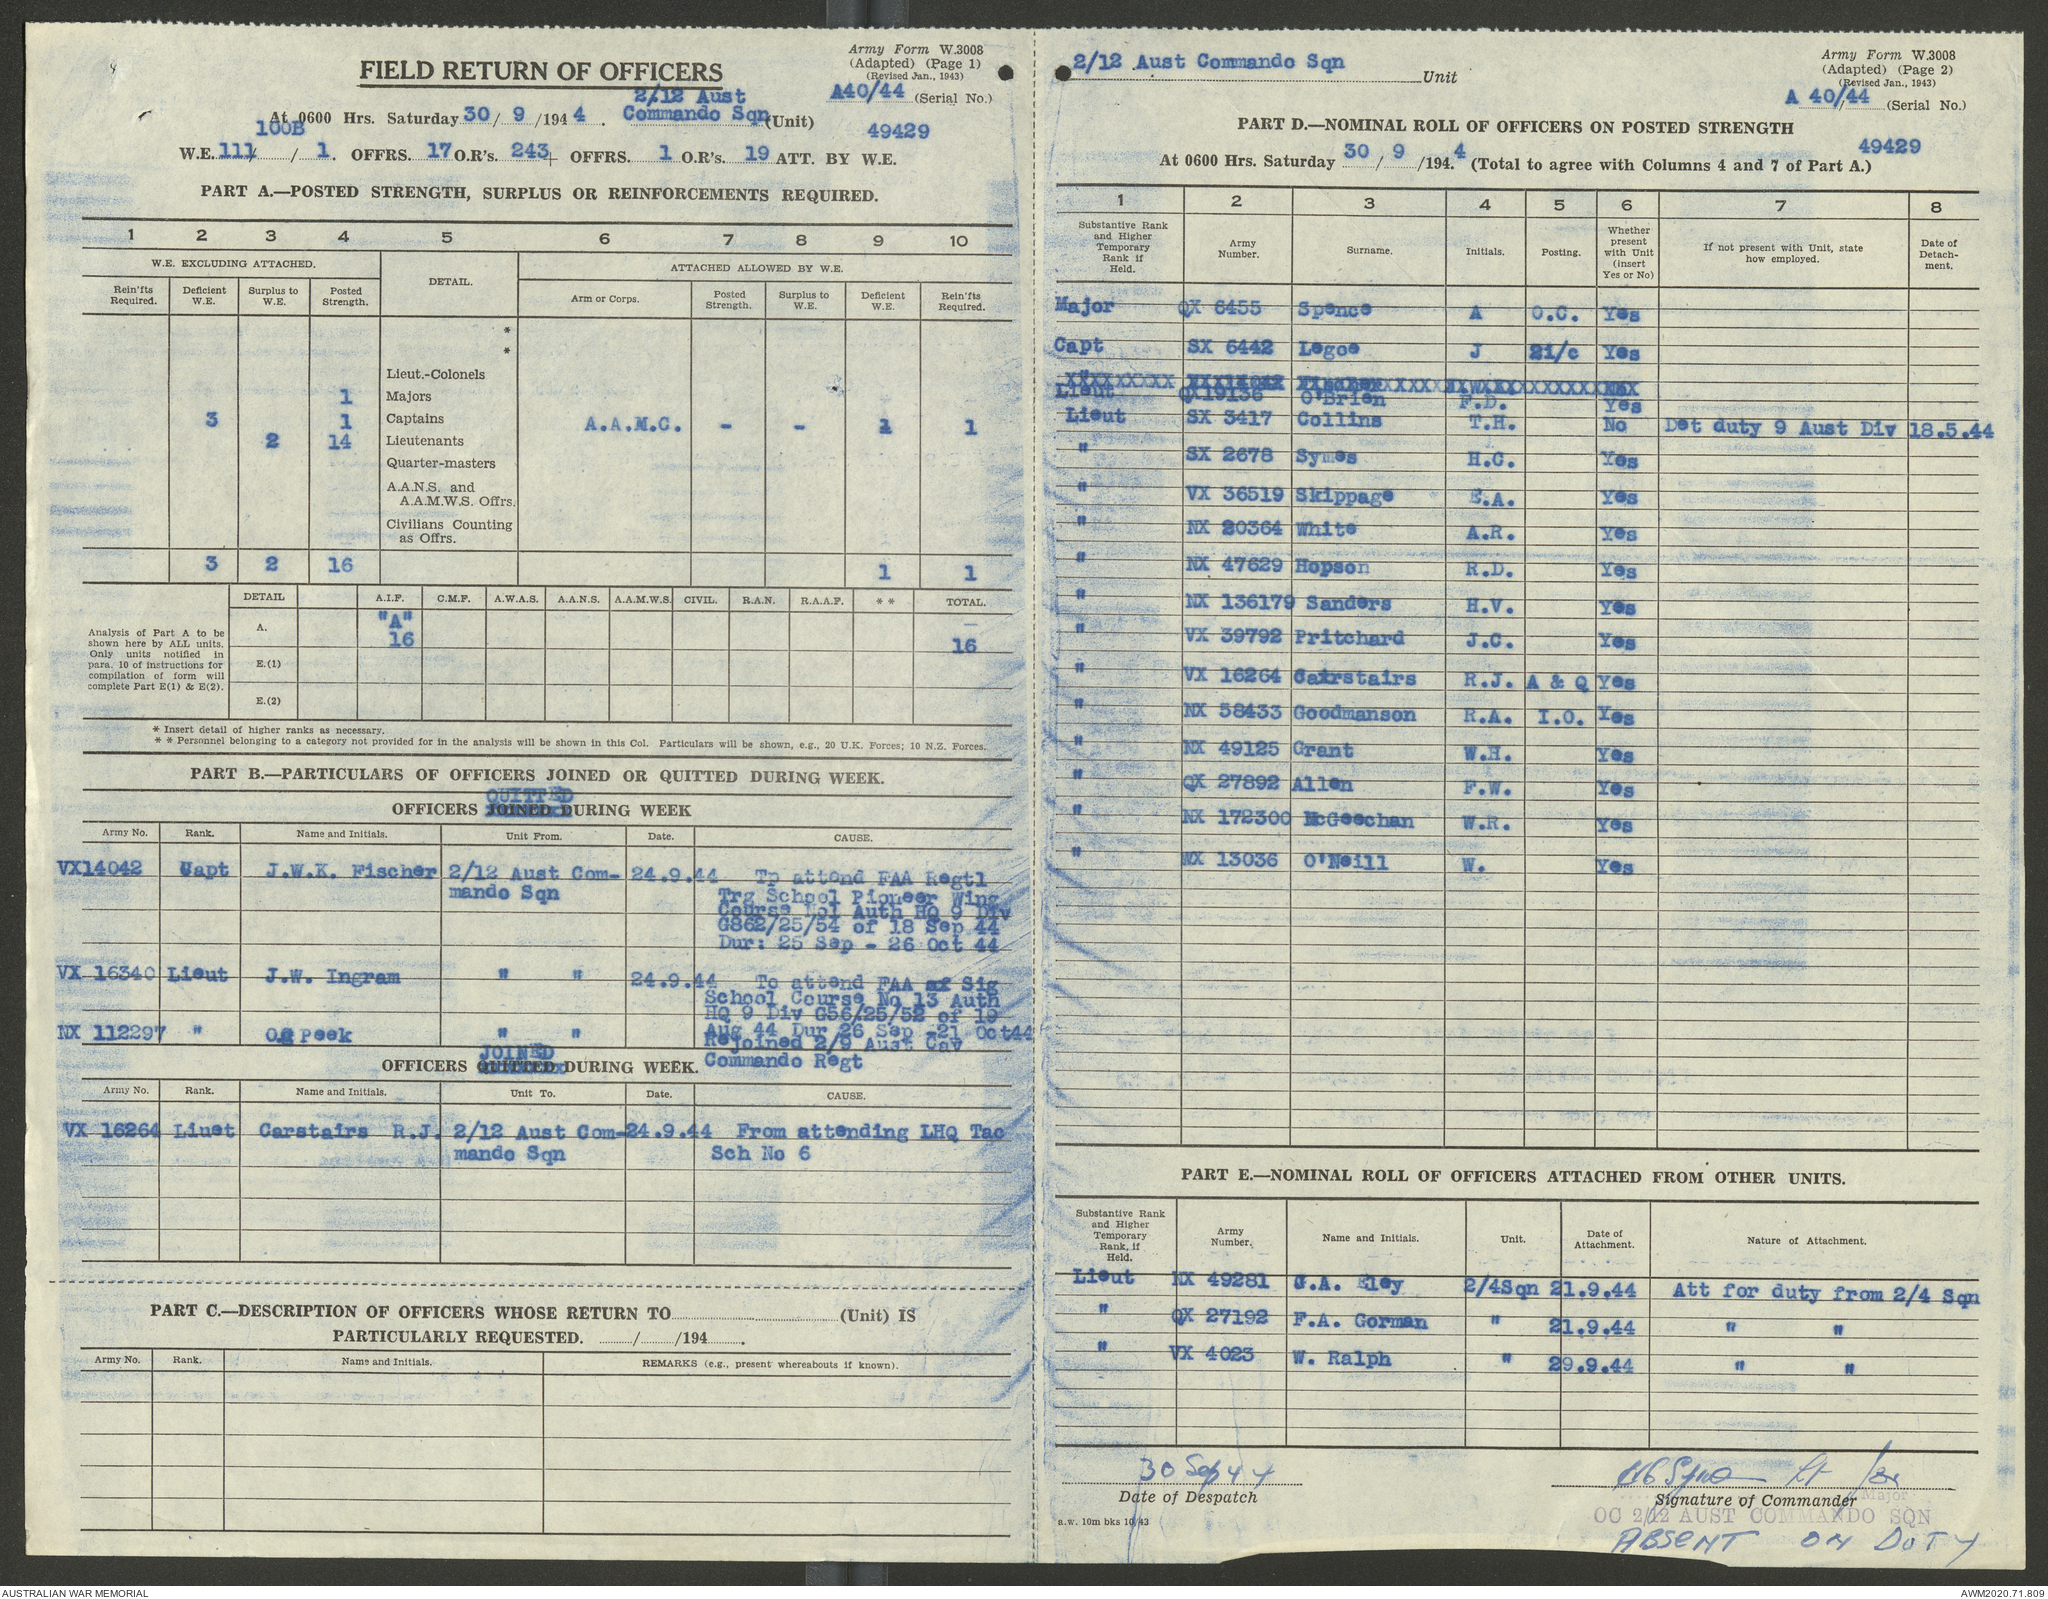 FIELD RETURN OF OFFICERS
Army Form W.3008
(Adapted) (Page 1)
(Revised Jan., 1943)
A40/44 (Serial No.)
At 0600 Hrs. Saturday 30/ 9 /194 4. 2/12 Aust Commando Sqn (Unit)
49429
100B
W.E. 111/ / 1. OFFRS. 17 O.R's. 243 + OFFRS. 1 O.R's. 19 ATT. BY W.E.
PART A.—POSTED STRENGTH, SURPLUS OR REINFORCEMENTS REQUIRED.
1 2 3 4 5 6 7 8 9 10
W.E. EXCLUDING ATTACHED. DETAIL. ATTACHED ALLOWED BY W.E.
Rein'fts Required. Deficient W.E. Surplus to W.E. Posted Strength. Arm or Corps. Posted Strength. Surplus to W.E. Deficient W.E. Rein'fts Required.
*
*
Lieut.-Colonels
1 Majors
3 1 Captains A.A.M.C. - - 1 1
2 14 Lieutenants
Quarter-masters
A.A.N.S. and
A.A.M.W.S. Offrs.
Civilians Counting
as Offrs.
3 2 16 1 1
DETAIL A.I.F. C.M.F. A.W.A.S. A.A.N.S. A.A.M.W.S. CIVIL. R.A.N. R.A.A.F. * * TOTAL.
Analysis of Part A to be
shown here by ALL units.
Only units notified in
para. 10 of instructions for
compilation of form will
complete Part E(1) & E(2).
A. "A" 16 16
E.(1)
E.(2)
* Insert detail of higher ranks as necessary.
* * Personnel belonging to a category not provided for in the analysis will be shown in this Col. Particulars will be shown, e.g., 20 U.K. Forces; 10 N.Z. Forces.
PART B.—PARTICULARS OF OFFICERS JOINED OR QUITTED DURING WEEK.
QUITTED
OFFICERS JOINED DURING WEEK
Army No. Rank. Name and Initials. Unit From. Date. CAUSE.
VX14042 Capt J.W.K. Fischer 2/12 Aust Com- 24.9.44 Tp attend FAA Regtl
mando Sqn Trg School Pioneer Wing
Course No1 Auth HQ 9 Div
G862/25/54 of 18 Sep 44
Dur: 25 Sep - 26 Oct 44
VX 16340 Lieut J.W. Ingram " " 24.9.44 To attend FAA Sig
School Course No 13 Auth
HQ 9 Div G56/25/52 of 19
NX 112297 " Peek " " Aug 44 Dur 26 Sep -21 Oct44
Rejoined 2/9 Aust Cav
Commando Regt
JOINED
OFFICERS QUITTED DURING WEEK.
Army No. Rank. Name and Initials. Unit To. Date. CAUSE.
VX 16264 Liuet Carstairs R.J. 2/12 Aust Com- 24.9.44 From attending LHQ Tac
mando Sqn Sch No 6
PART C.—DESCRIPTION OF OFFICERS WHOSE RETURN TO (Unit) IS
PARTICULARLY REQUESTED. / /194 .
Army No. Rank. Name and Initials. REMARKS (e.g., present whereabouts if known).
2/12 Aust Commando Sqn Unit
Army Form W.3008
(Adapted) (Page 2)
(Revised Jan., 1943)
A 40/44 (Serial No.)
PART D.—NOMINAL ROLL OF OFFICERS ON POSTED STRENGTH
49429
At 0600 Hrs. Saturday 30 / 9 /194. 4 (Total to agree with Columns 4 and 7 of Part A.)
1 2 3 4 5 6 7 8
Substantive Rank and Higher Temporary Rank if Held. Army Number. Surname. Initials. Posting. Whether present with Unit (insert Yes or No) If not present with Unit, state how employed. Date of Detach-ment.
Major QX 6455 Spence A O.C. Yes
Capt SX 6442 Legoe J 2i/c Yes
Lieut QX19136 O'Brien F.D. Yes
Lieut SX 3417 Collins T.H. No Det duty 9 Aust Div 18.5.44
" SX 2678 Symes H.C. Yes
" VX 36519 Skippage E.A. Yes
" NX 20364 White A.R. Yes
" NX 47629 Hopson R.D. Yes
" NX 136179 Sanders H.V. Yes
" VX 39792 Pritchard J.C. Yes
" VX 16264 Carstairs R.J. A & Q Yes
" NX 58433 Goodmanson R.A. I.O. Yes
" NX 49125 Grant W.H. Yes
" QX 27892 Allen F.W. Yes
" NX 172300 McGeechan W.R. Yes
" WX 13036 O'Neill W. Yes
PART E.—NOMINAL ROLL OF OFFICERS ATTACHED FROM OTHER UNITS.
Substantive Rank and Higher Temporary Rank, if Held. Army Number. Name and Initials. Unit. Date of Attachment. Nature of Attachment.
Lieut NX 49281 G.A. Eley 2/4Sqn 21.9.44 Att for duty from 2/4 Sqn
" QX 27192 F.A. Gorman " 21.9.44 " "
" VX 4023 W. Ralph " 29.9.44 " "
30 Sep 44
Date of Despatch
HC Symes Lt for
Signature of Commander
Major
OC 2/12 AUST COMMANDO SQN
ABSENT ON DUTY
a.w. 10m bks 10/43
AUSTRALIAN WAR MEMORIAL
AWM2020.71.809